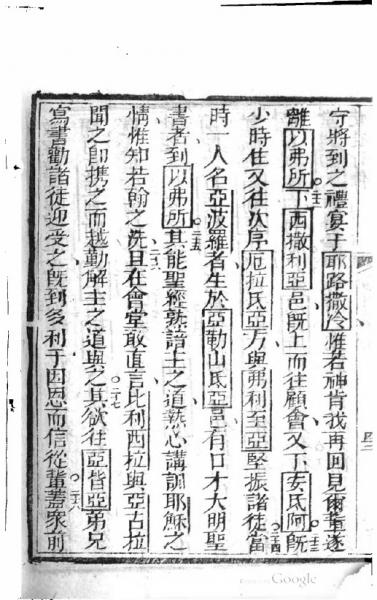 守將到之禮宴于耶路撒冷惟若神肯我再回見爾輩遂
離以弗所二二下西撒利亞邑既上而往顧會又下安氏阿二三既
少時住又往次序厄拉氏亞方與弗利至亞堅振諸徒當二四
時一人名亞波羅者生於亞勒山氏亞邑有口才大明聖
書者到以弗所二五其能聖經熟諳主之道熱心講訓耶穌之
情惟知若翰之洗二六且在會堂敢直言比利西拉與亞古拉
聞之即携之而越勤解主之道與之二七其欲往亞皆亞弟兄
寫書勸諸徒迎受之既到多利于因恩而信從輩二八蓋衆前
Google